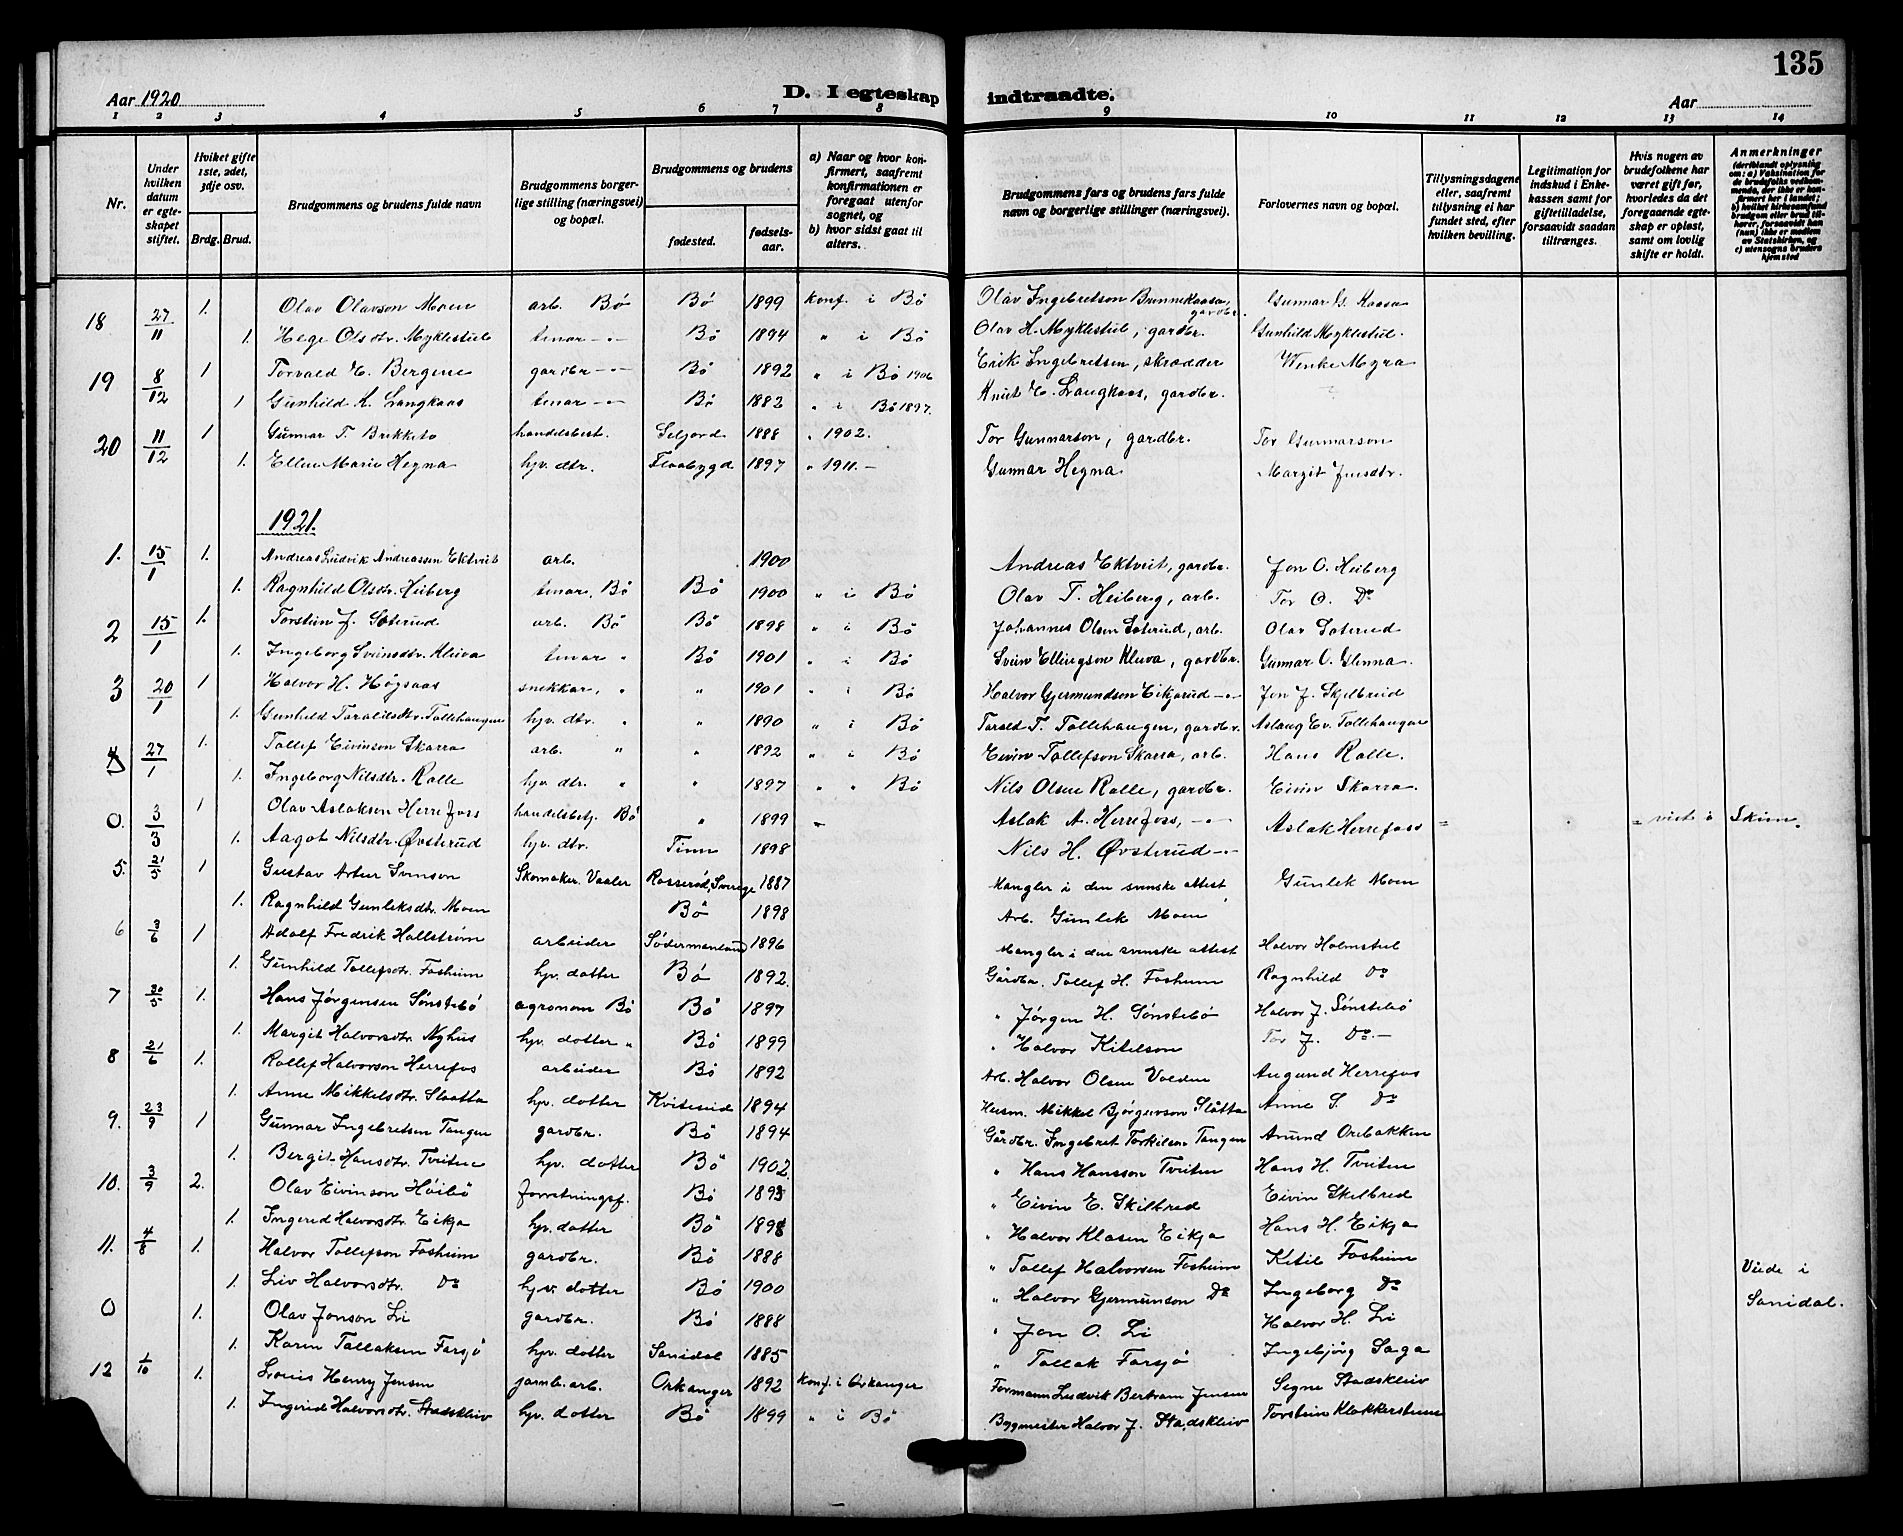 135
Aar 1920
D. I egteskap indtraadte.
Aar
1 2 3 4 5 6 7 8 9 10 11 12 13 14
Nr.
Under hvilken datum er egteskapet stiftet.
Hviket gifte 1ste, 2det, 3dje osv.
Brdg. Brud.
Brudgommens og brudens fulde navn
Brudgommens borgerlige stilling (næringsvei) og bopæl.
Brudgommens og brudens
fødested.
fødselsaar.
a) Naar og hvor konfirmert, saafremt konfirmationen er foregaat utenfor sognet, og
b) hvor sidst gaat til alters.
Brudgommens fars og brudens fars fulde navn og borgerlige stillinger (næringsvei).
Forlovernes navn og bopæl.
Tillysningsdagene eller, saafremt tillysning ei har fundet sted, efter hvilken bevilling.
Legitimation for indskud i Enkekassen samt for giftetilladelse, forsaavidt saadan tiltrænges.
Hvis nogen av brudefolkene har været gift før, hvorledes da det foregaaende egteskap er opløst, samt om lovlig skifte er holdt.
Anmerkninger (deriblandt oplysning om: a) Vaksination for de brudefolks vedkommende, der ikke er konfirmert her i landet; b) hvilket kirkesamfund brudgom eller brud tilhører, forsaavidt han (hun) ikke er medlem av Statskirken, og c) utensogns bruders hjemsted
18 27/11 1. Olav Olavson Moen arb. Bø Bø 1899 Konf. i Bø Olav Ingebretson Brennekaasa, gardbr. Gunnar G. Kaasa
1. Hege Olsdtr. Myklestul tenar -"- Bø 1894 " i Bø Olav H. Myklestul, gardbr. Gunhild Myklestul.
19 8/12 1 Torvald E. Bergene gardbr -"- Bø 1892 " i Bø 1906 Erik Ingebretsen, skrædder Wenke Myra
1 Gunhild K. Langkaas tenar -"- Bø 1882 " i Bø 1897. Knut E. Langkaas, gardbr.
20 11/12 1 Gunnar T. Brekketo handelsbest. Seljord 1888 " 1902. Tor Gunnarson, gardbr. Tor Gunnarson
1. Ellen Marie Hegna hjv. dtr. Flaabygd 1897 " 1911. - Gunnar Hegna Margit Jensdtr.
1921.
1. 15/1 1. Andreas Ludvik Andreassen Ektveit arb. 1900 Andreas Ektveit, gardbr. Jon O. Heiberg
1. Ragnhild Olsdtr. Heiberg tenar, Bø Bø 1900 " i Bø Olav T. Heiberg, arb. Tor O. Do
2 15/1 1. Torstein J. Soterud arb. Bø Bø 1898 " i Bø Johannes Olsen Soterud, arb. Olav Soterud
1. Ingeborg Sveinsdtr. Kleiva tenar " Bø 1901 " i Bø Svein Ellingson Kleiva, gardbr. Gunnar O. Glenna.
3 20/1 1 Halvor H. Høgsaas snekkar, " " 1901 " i Bø Halvor Gjermundson Eikjarud -"- Jon J. Skjelbreid
1. Gunhild Taraldsdtr. Tollehaugen hjv. dtr. " " 1890 " i Bø Tarald T. Tollehaugen, gardbr. Aslaug Ev. Tollehaugen
4 27/1 1. Tollef Eivinson Skarra arb. " " 1892 " i Bø Eivin Tollefson Skarra, arb. Hans Ralle.
1. Ingeborg Nilsdtr. Ralle hjv. dtr. " " 1897 " " Bø Nils Olsen Ralle, gardbr. Eivin Skarra.
0. 3/3 1 Olav Aslaksen Herrefoss handelsbetj. Bø " 1899 " Aslak A. Herrefoss, -"- Aslak Herrefoss = " = viet i Skien.
1. Aagot Nilsdtr. Øvsterud hjv. dtr. Tinn 1898 Nils H. Øvsterud -"-
5. 21/5 1 Gustav Artur Svenson Skomaker. Vaaler Rosserød, Sverige 1887 Mangler i den svenske attest Gunlek Moen
1. Ragnhild Gunleksdtr. Moen Bø 1898 Arb. Gunlek Moen
6 3/6 1 Adolf Fredrik Hallstrøm arbeider Södermanland 1896 Mangler i den svenske attest Halvor Holmstul
1. Gunhild Tollefsdtr. Fosheim hjv. dotter Bø 1892. Gårdbr. Tollef H. Fosheim Ragnhild Do
7 30/5 1. Hans Jørgensen Sønstebø agronom Bø Bø 1897 " Jørgen H. Sønstebø Halvor J. Sønstebø
1. Margit Halvorsdtr. Nyhus hjv. dotter " Bø 1899 " Halvor Kitelson Tor J. Do. -
8 21/6 1. Rollef Halvorson Herrefos arbeider Bø 1892 Arb. Halvor Olsen Volden Augund Herrefos
1. Anne Mikkelsdtr. Slaatta hjv. dotter Kviteseid 1894 Husm. Mikkel Bjørgevson Slåtta Anne S. Do
9. 23/9 1 Gunnar Ingebretsen Tangen gardbr. Bø 1894 Gårdbr. Ingebret Torkilsen Tangen Anund Orebakken
1. Bergit Hansdtr. Tveiten hjv. dotter Bø 1902 " Hans Hansson Tveiten Hans H. Tveiten
10. 3/9 2. Olav Eivinson Høibø forretningsf. Bø 1893 " Eivin E. Skilbred Eivin Skilbred
1. Ingerid Halvorsdtr. Eikja hjv. dotter Bø 1898 " Halvor Klasen Eikja Hans H. Eikja
11. 4/8 1. Halvor Tollefson Fosheim gardbr. Bø 1888 " Tollef Halvorsen Fosheim Ketil Fosheim
1. Liv Halvorsdtr. Do hjv. dotter Bø 1900 " Halvor Gjermunson Do Ingeborg Do Viede i Sanidal.
0 1. Olav Jonson Li gardbr. Bø 1888 " Jon O. Li Halvor H. Li
1. Karen Tallaksen Farsjø hjv. dotter Sanidal 1885 " Tallak Farsjø Ingebjørg Saga
12 1/10 1. Louis Henry Jensen jarnb. arb. Orkanger 1892 Konf. i Orkanger Formann Ludvik Bertram Jensen Segne Stadskleiv
1. Ingerid Halvorsdtr. Stadskleiv hjv. dotter Bø 1899 " i Bø Byggmeister Halvor J. Stadskleiv Torstein Klokkersteine